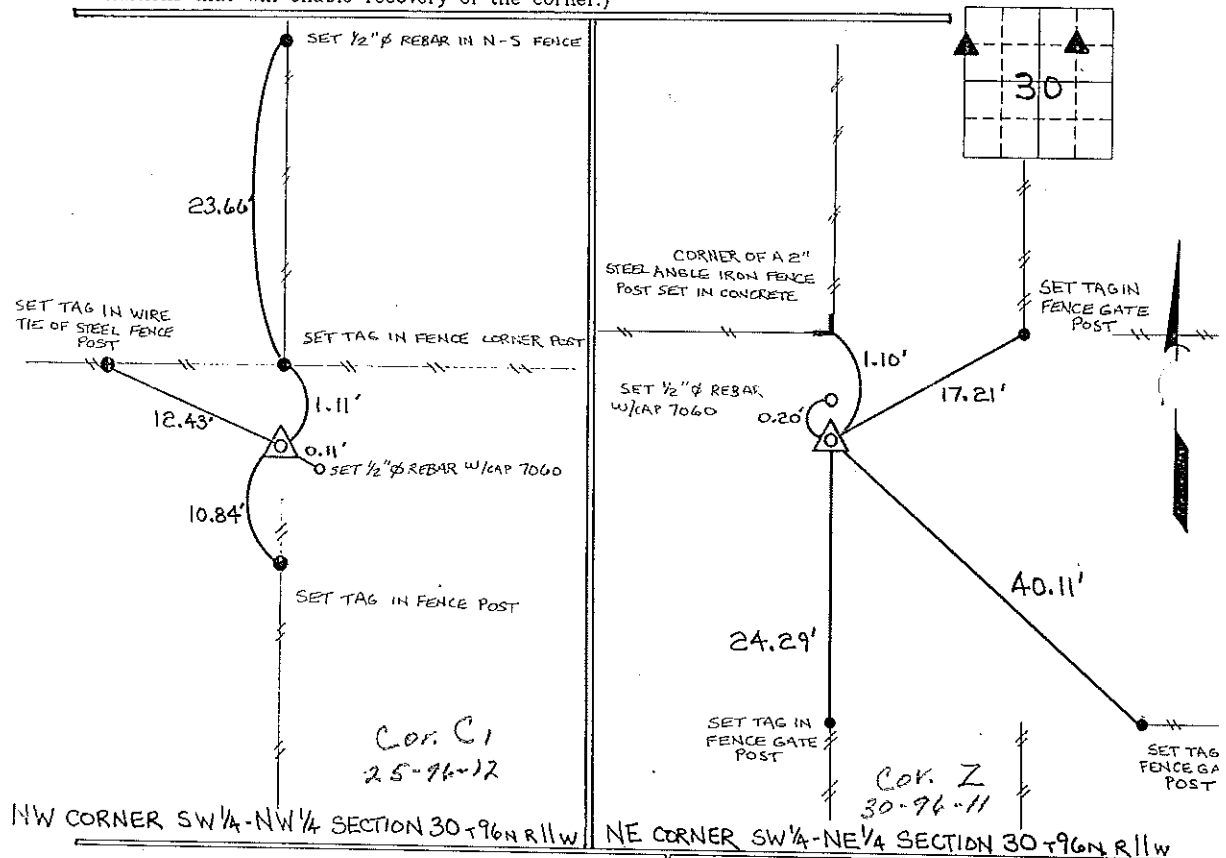 that will enable recovery of the corner.)
SET 1/2"ø REBAR IN N-S FENCE
23.66'
SET TAG IN WIRE
TIE OF STEEL FENCE
POST
SET TAG IN FENCE CORNER POST
1.11'
12.43'
0.11'
SET 1/2"ø REBAR W/CAP 7060
10.84'
SET TAG IN FENCE POST
Cor. C1
25-96-12
NW CORNER SW 1/4-NW 1/4 SECTION 30 T96N R11W
30
CORNER OF A 2"
STEEL ANGLE IRON FENCE
POST SET IN CONCRETE
SET TAG IN
FENCE GATE
POST
1.10'
17.21'
SET 1/2"ø REBAR
W/CAP 7060
0.20'
40.11'
24.29'
SET TAG IN
FENCE GATE
POST
SET TAG
FENCE GA
POST
Cor. Z
30-96-11
NE CORNER SW 1/4-NE 1/4 SECTION 30 T96N R11W